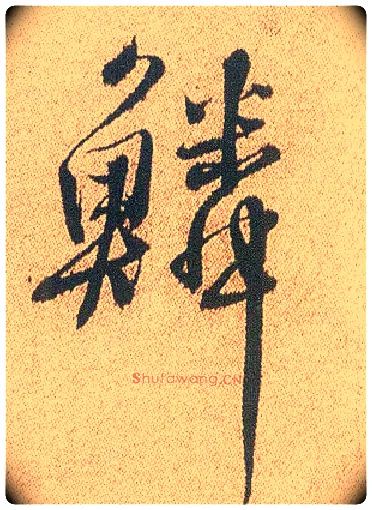 鱗
Shufawang.CN